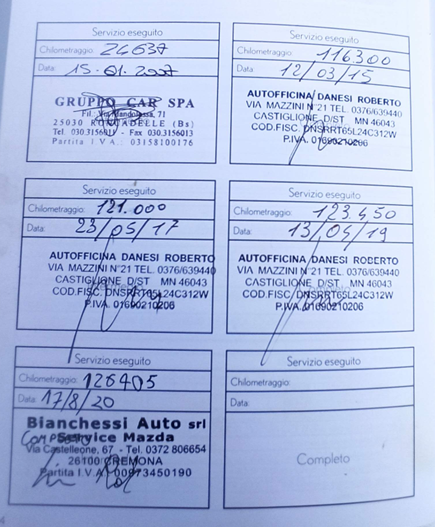 Servizio eseguito
Chilometraggio: 24637
Data: 15-01-2007
GRUPPO CAR SPA
Fil.: Via Mandolossa, 71
25030 RONCADELLE (Bs)
Tel. 030.3156911 - Fax 030.3156013
Partita I.V.A. 03158100176
Servizio eseguito
Chilometraggio: 116.300
Data: 12/03/15
AUTOFFICINA DANESI ROBERTO
VIA MAZZINI N°21 TEL. 0376/639440
CASTIGLIONE D/ST MN 46043
COD.FISC. DNSRRT65L24C312W
P.IVA. 01690210206
Servizio eseguito
Chilometraggio: 121.000
Data: 23/05/17
AUTOFFICINA DANESI ROBERTO
VIA MAZZINI N°21 TEL. 0376/639440
CASTIGLIONE D/ST MN 46043
COD.FISC. DNSRRT65L24C312W
P.IVA. 01690210206
Servizio eseguito
Chilometraggio: 123.450
Data: 13/04/19
AUTOFFICINA DANESI ROBERTO
VIA MAZZINI N°21 TEL. 0376/639440
CASTIGLIONE D/ST MN 46043
COD.FISC. DNSRRT65L24C312W
P.IVA. 01690210206
Servizio eseguito
Chilometraggio: 126405
Data: 17/8/20
Bianchessi Auto srl
Service Mazda
Via Castelleone, 67 - Tel. 0372 806654
26100 CREMONA
Partita I.V.A. 00973450190
Servizio eseguito
Chilometraggio:
Data:
Completo